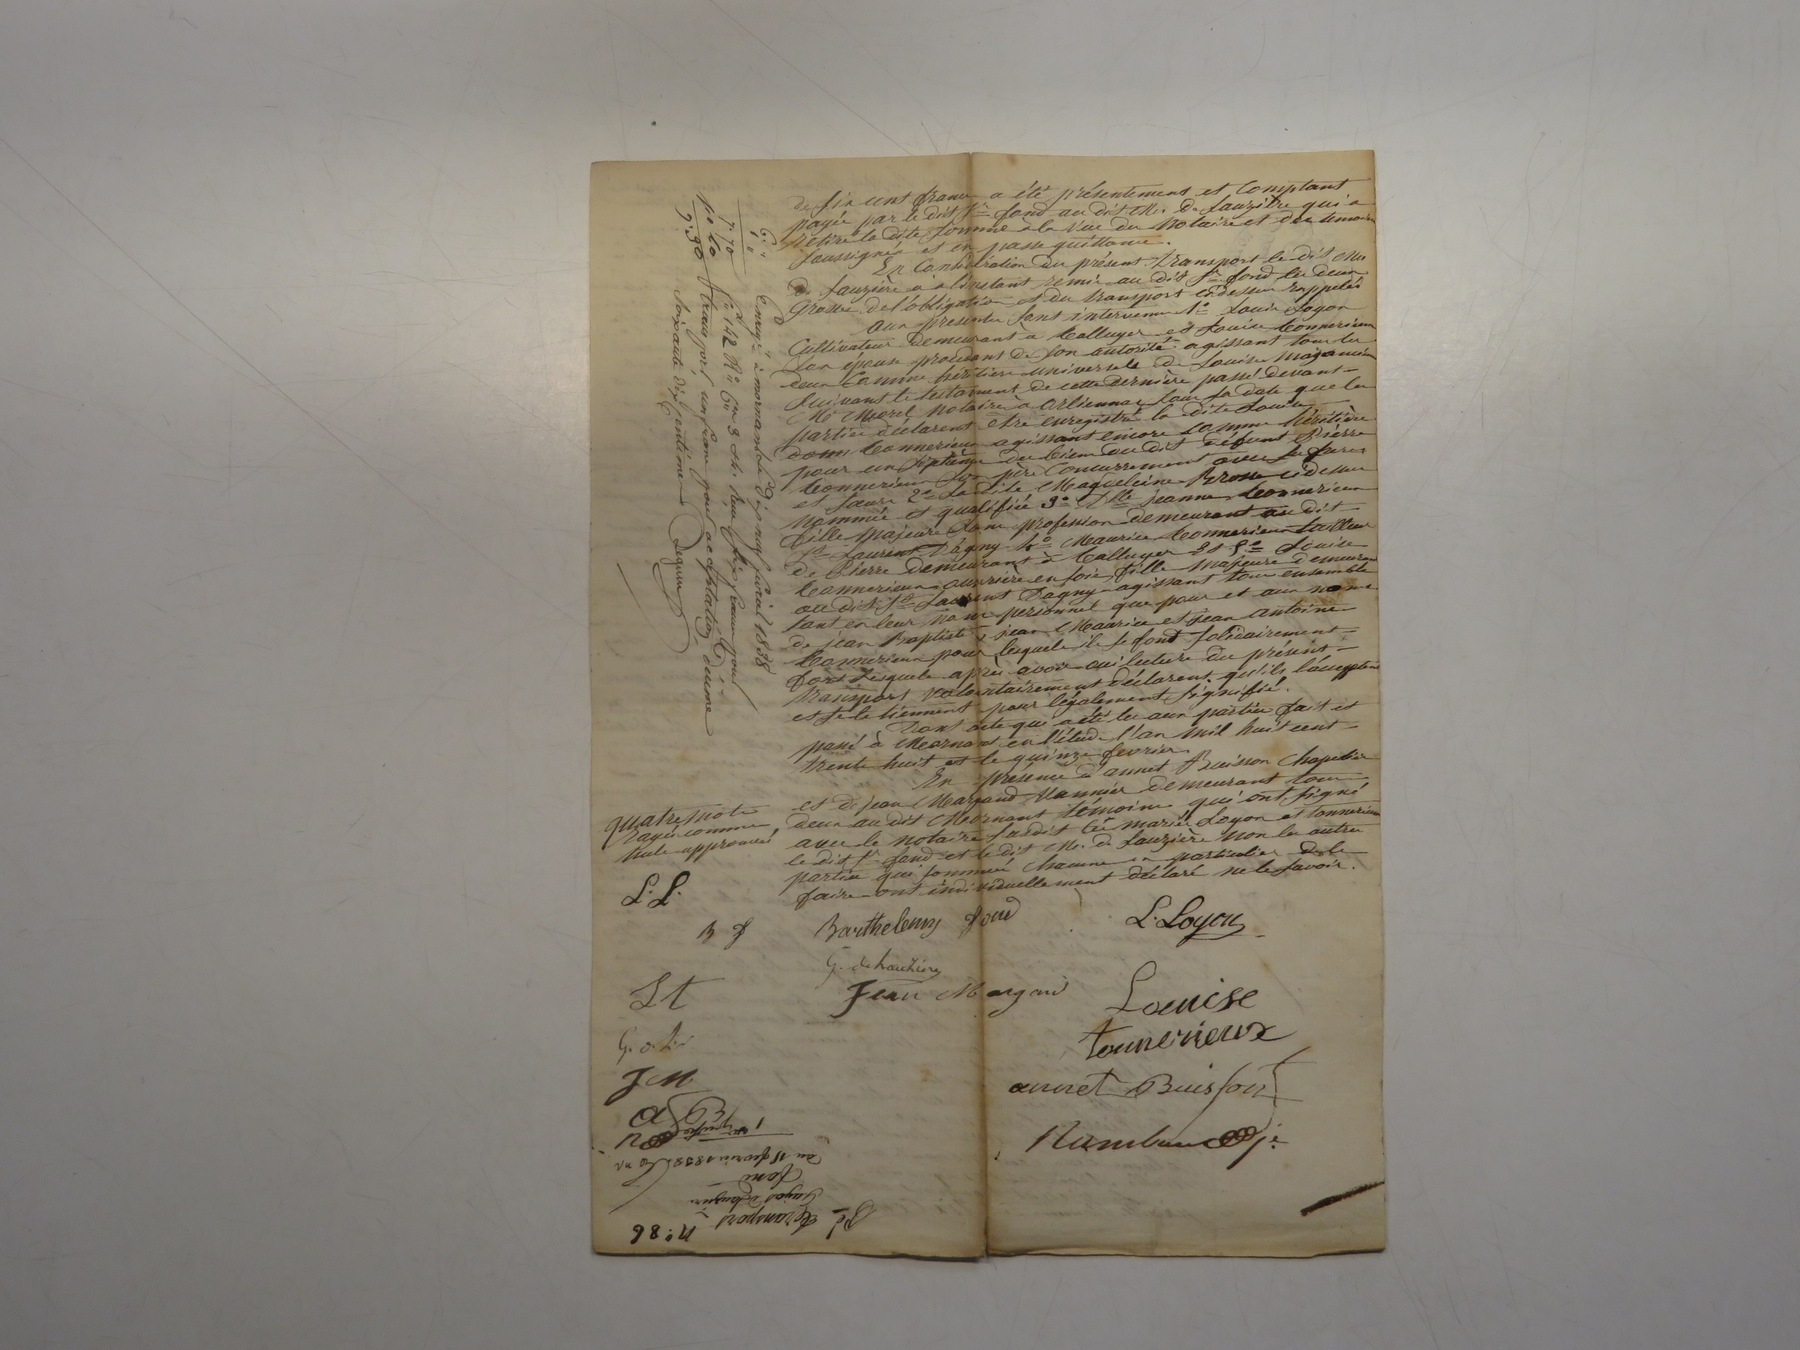 de six cent francs a été présentement et Comptant
payée par le dit Sr fond au dit Mr. De Lauzière qui a
retiré la dite somme à la vue du Notaire et des temoins
soussignés et en passe quittance.
En Considération du présent transport le dit Mr
De Lauzière a à l'instant remis au dit Sr fond les deux
Grosses de l'obligation et du transport cidessus rappelés
aux présentes sont intervenus 1o Louis Loyon
Cultivateur demeurant à Talluyer et Louise Tonnerieux
son épouse procédant de son autorité agissant tous les
deux comme héritiers universels de Louise
suivant le testament de cette dernière passé devant
Me Morel Notaire à Orliennas sous sa date que les
parties déclarent être enregistré la dite Louise
Tonnerieux agissant encore comme héritière
pour un septième des biens du dit défunt Pierre
Tonnerieux son père Concurremment avec ses frères
et sœurs 2o La dite Magdeleine Brosse cidessus
Nommée et qualifiée 3o Dlle jeanne Tonnerieux
fille majeure sans profession demeurant au dit
St Laurent D'agny 4o Maurice Tonnerieux tailleur
de Pierre demeurant à Talluyer Et 5o Louise
Tonnerieux ouvrière en soie, fille majeure demeurant
au dit St Laurent Dagny agissant tous ensemble
tant en leur nom personnel que pour et aux noms
de jean Baptiste, jean Maurice et jean antoine
Tonnerieux pour lesquels ils se font solidairement
forts Lesquels après avoir oui lecture du présent
transport volontairement déclarent qu'ils l'acceptent
et se le tiennent pour légalement signifié.
Dont acte qui a été lu aux parties fait et
passé à Mornant en l'étude l'an mil huit cent
trente huit et le quinze fevrier
En présence d'annet Buisson Chapelier
et de jean Margand Vannier demeurant tous
deux au dit Mornant témoins qui ont signé
avec le notaire lesdits mariés Loyon et Tonnerieux
le dit Sr fond et le dit Mr. de Lauzière non les autres
parties qui sommées chacune en particulier de le
faire ont individuellement déclaré ne le savoir.
quatre mots
rayés comme
nuls approuvés
L. L.
B f
Barthelemy fond
L. Loyon
G. de Lauzière
L t
Jean Margand
Louise
tonnerieux
G. d L.
J M
annet Buisson
a B
n
Enregé à mornant le dix neuf fevrier 1838
fo 142 Ro Cses 3 &c. Reçu six francs pour
transport un franc pour acceptation, décime
soixante dix centimes
6. "
1. "
7. 70
7. 90
No. 86
Transport
Guyot de Lauzière
à
fond
du 15 fevrier 1838